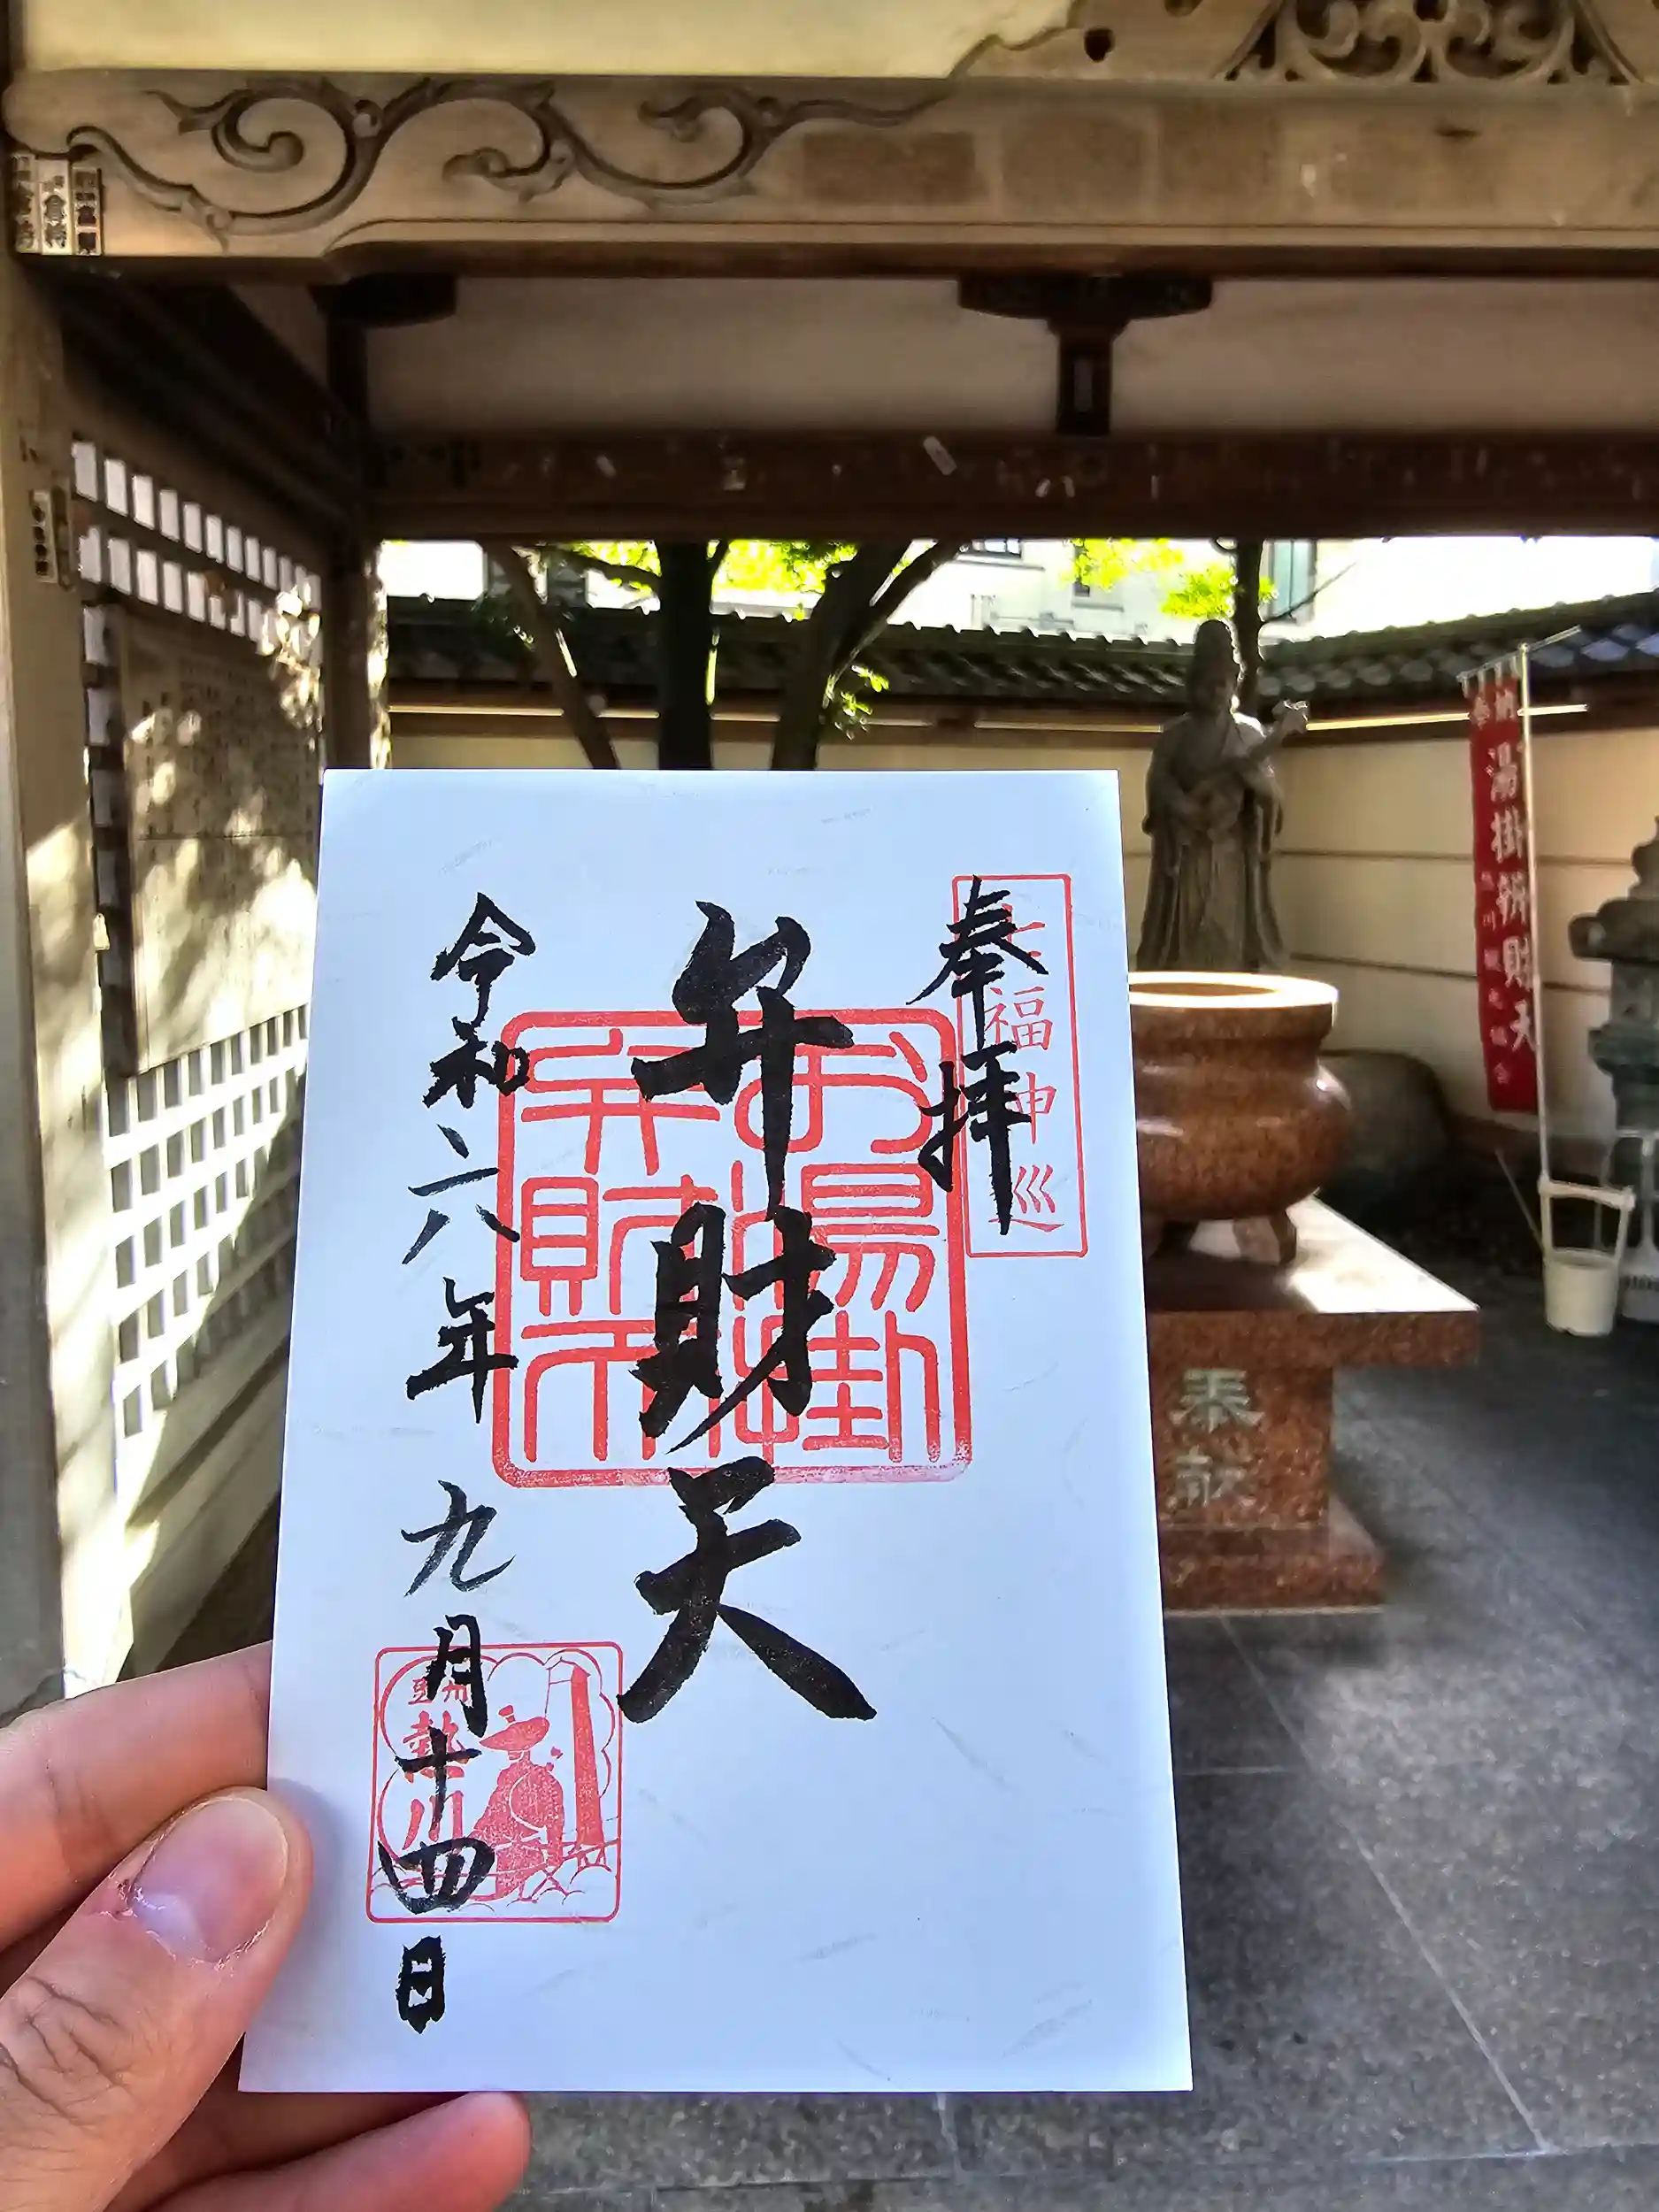 奉拝
七福神巡
弁財天
お湯掛
弁財天
令和六年 九月十四日
熱川
奉納
湯掛辨財天
奉献